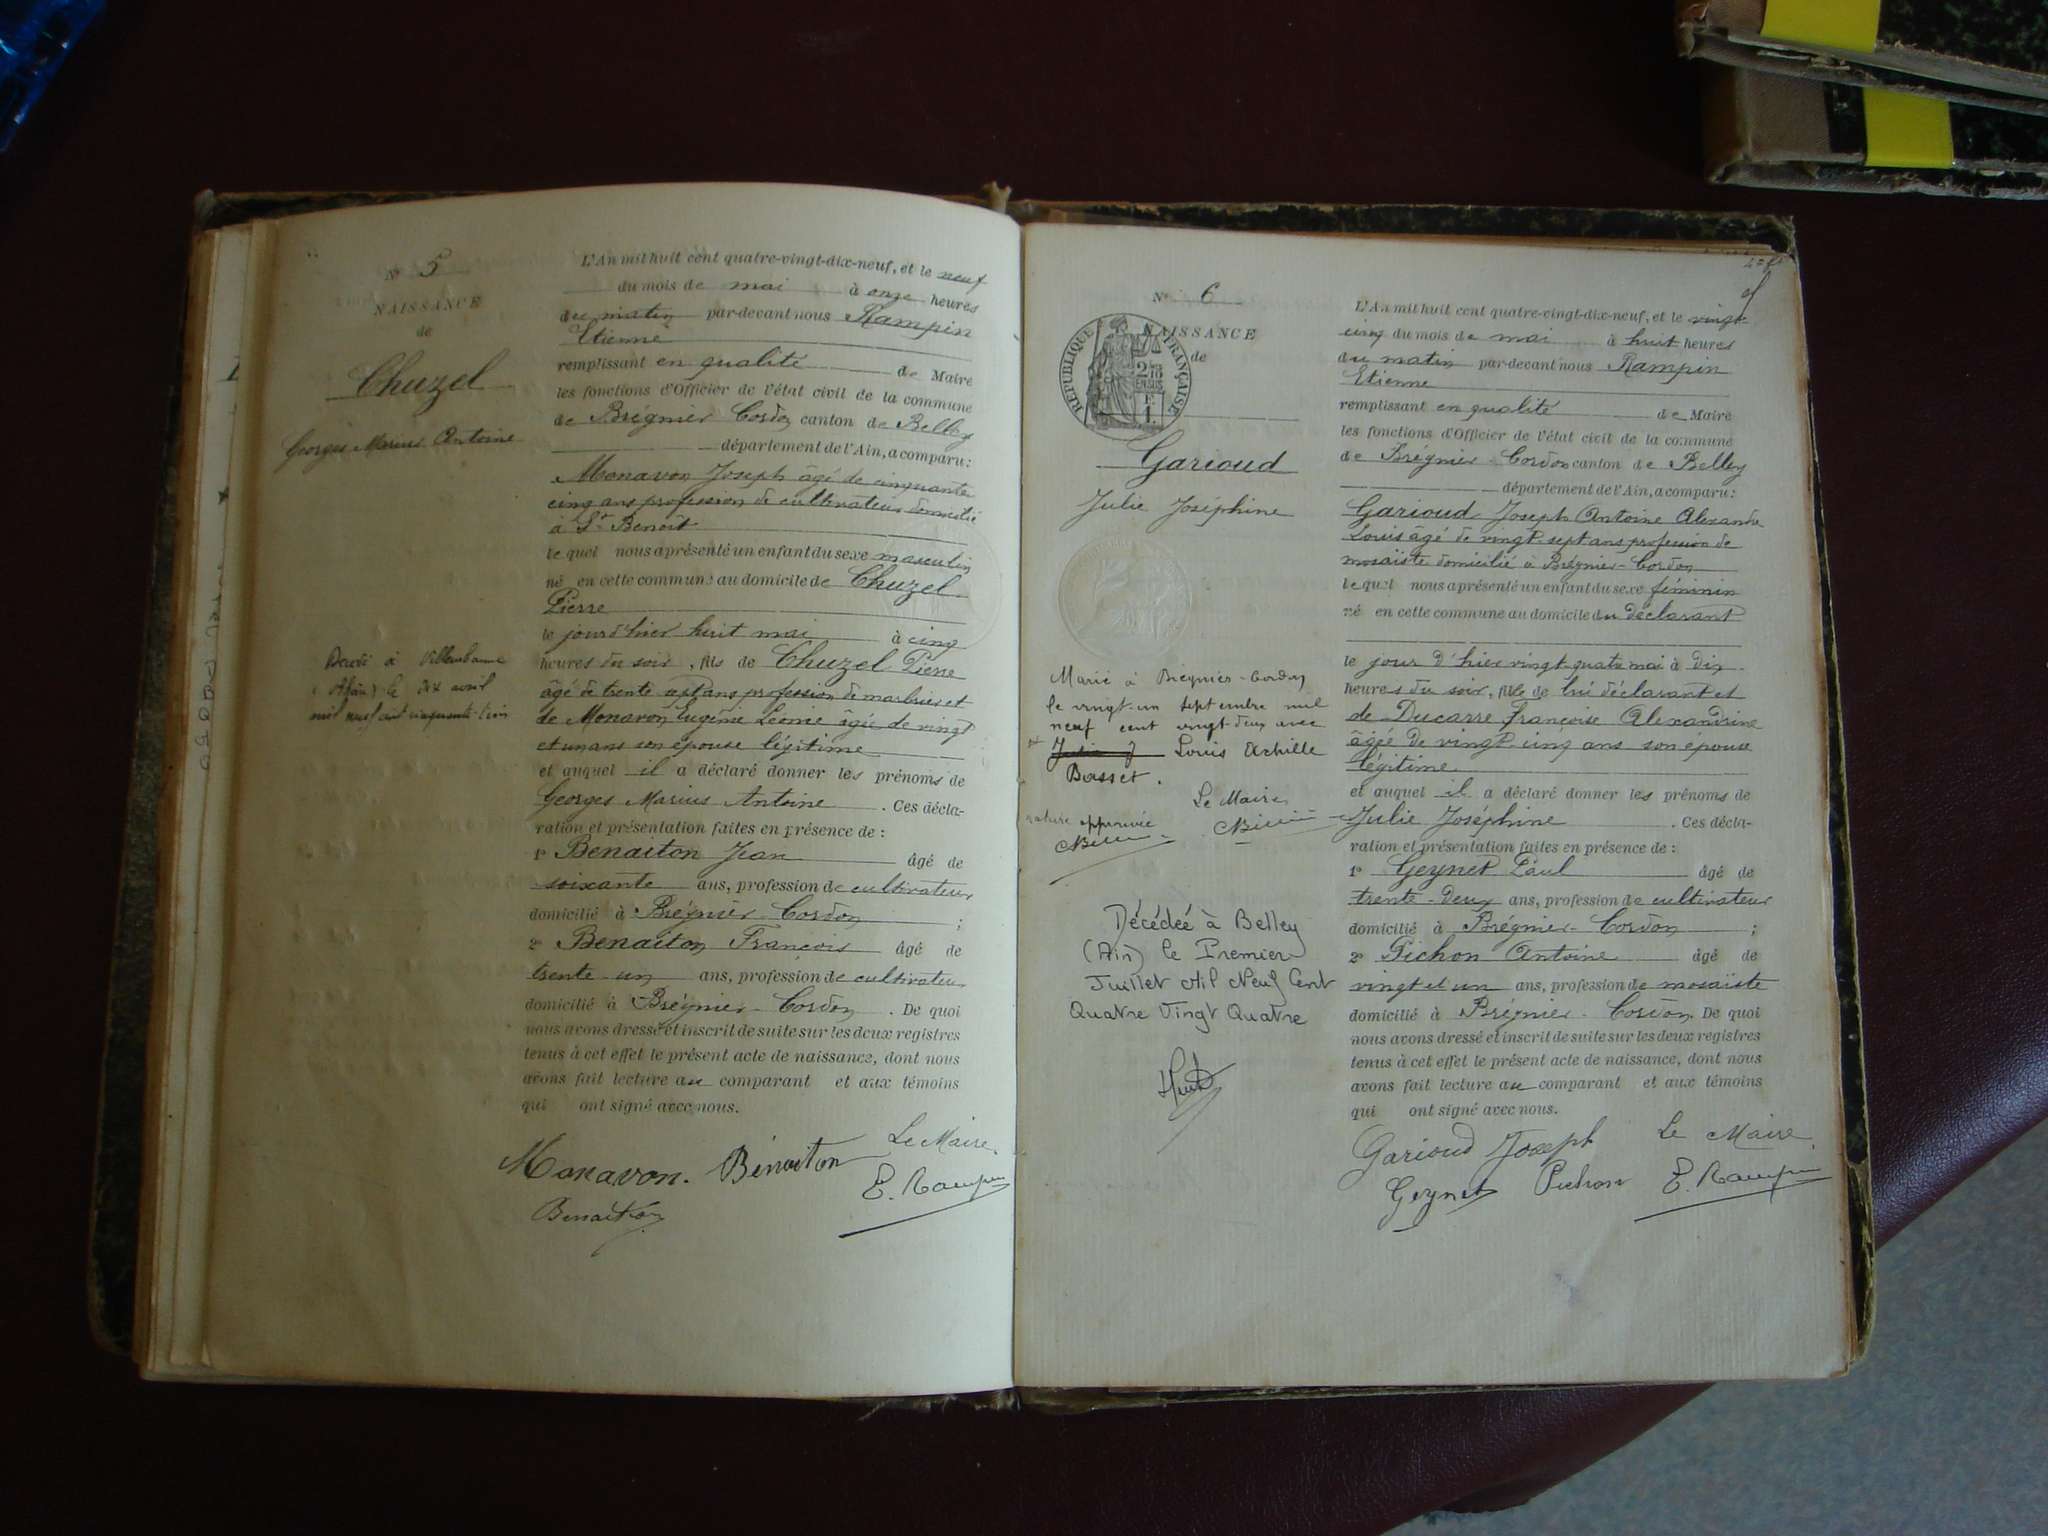 N° 5
NAISSANCE
de
Chuzel
Georges Marius Antoine
Décédé à Villeurbanne
le dix avril
mil neuf cent cinquante trois
L'An mil huit cent quatre-vingt-dix-neuf, et le neuf
du mois de mai à onze heures
du matin par-devant nous Rampin
Etienne
remplissant en qualité de Maire
les fonctions d'Officier de l'état civil de la commune
de Brégnier Cordon canton de Belley
département de l'Ain, a comparu :
Monavon Joseph âgé de cinquante
cinq ans profession de cultivateur domicilié
à St Benoit
lequel nous a présenté un enfant du sexe masculin
né en cette commune au domicile de Chuzel
Pierre
le jour d'hier huit mai à cinq
heures du soir, fils de Chuzel Pierre
âgé de trente sept ans profession de marbrier et
de Monavon Eugénie Léonie âgée de vingt
et un ans son épouse légitime
et auquel il a déclaré donner les prénoms de
Georges Marius Antoine . Ces décla-
ration et présentation faites en présence de :
1° Benaiton Jean âgé de
soixante ans, profession de cultivateur
domicilié à Brégnier-Cordon ;
2° Benaiton François âgé de
trente un ans, profession de cultivateur
domicilié à Brégnier-Cordon . De quoi
nous avons dressé et inscrit de suite sur les deux registres
tenus à cet effet le présent acte de naissance, dont nous
avons fait lecture au comparant et aux témoins
qui ont signé avec nous.
Le Maire
Monavon. Benaiton E. Rampin
Benaiton
N° 6
NAISSANCE
de
RÉPUBLIQUE FRANÇAISE
2/10
EN SUS
F.
1.
Garioud
Julie Joséphine
Marié à Brégnier-Cordon
le vingt-un septembre mil
neuf cent vingt-deux avec
Julie J Louis Achille
Basset.
Le Maire
rature approuvée
Décédée à Belley
(Ain) le Premier
Juillet Mil Neuf Cent
Quatre Vingt Quatre
L'An mil huit cent quatre-vingt-dix-neuf, et le vingt-
cinq du mois de mai à huit heures
du matin par-devant nous Rampin
Etienne
remplissant en qualité de Maire
les fonctions d'Officier de l'état civil de la commune
de Brégnier-Cordon canton de Belley
département de l'Ain, a comparu :
Garioud Joseph Antoine Alexandre
Louis âgé de vingt sept ans profession de
mosaïste domicilié à Brégnier-Cordon
lequel nous a présenté un enfant du sexe féminin
né en cette commune au domicile du déclarant
le jour d'hier vingt quatre mai à dix
heures du soir, fille de lui déclarant et
de Ducarre Françoise Alexandrine
âgée de vingt cinq ans son épouse
légitime
et auquel il a déclaré donner les prénoms de
Julie Joséphine . Ces décla-
ration et présentation faites en présence de :
1° Geynet Paul âgé de
trente-deux ans, profession de cultivateur
domicilié à Brégnier-Cordon ;
2° Pichon Antoine âgé de
vingt et un ans, profession de mosaïste
domicilié à Brégnier-Cordon. De quoi
nous avons dressé et inscrit de suite sur les deux registres
tenus à cet effet le présent acte de naissance, dont nous
avons fait lecture au comparant et aux témoins
qui ont signé avec nous.
Garioud Joseph Le Maire
Geynet Pichon E. Rampin